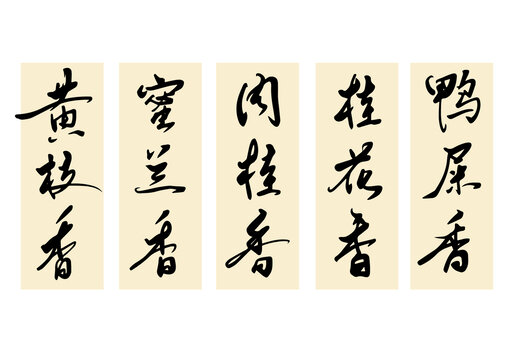 黄枝香
蜜兰香
肉桂香
桂花香
鸭屎香